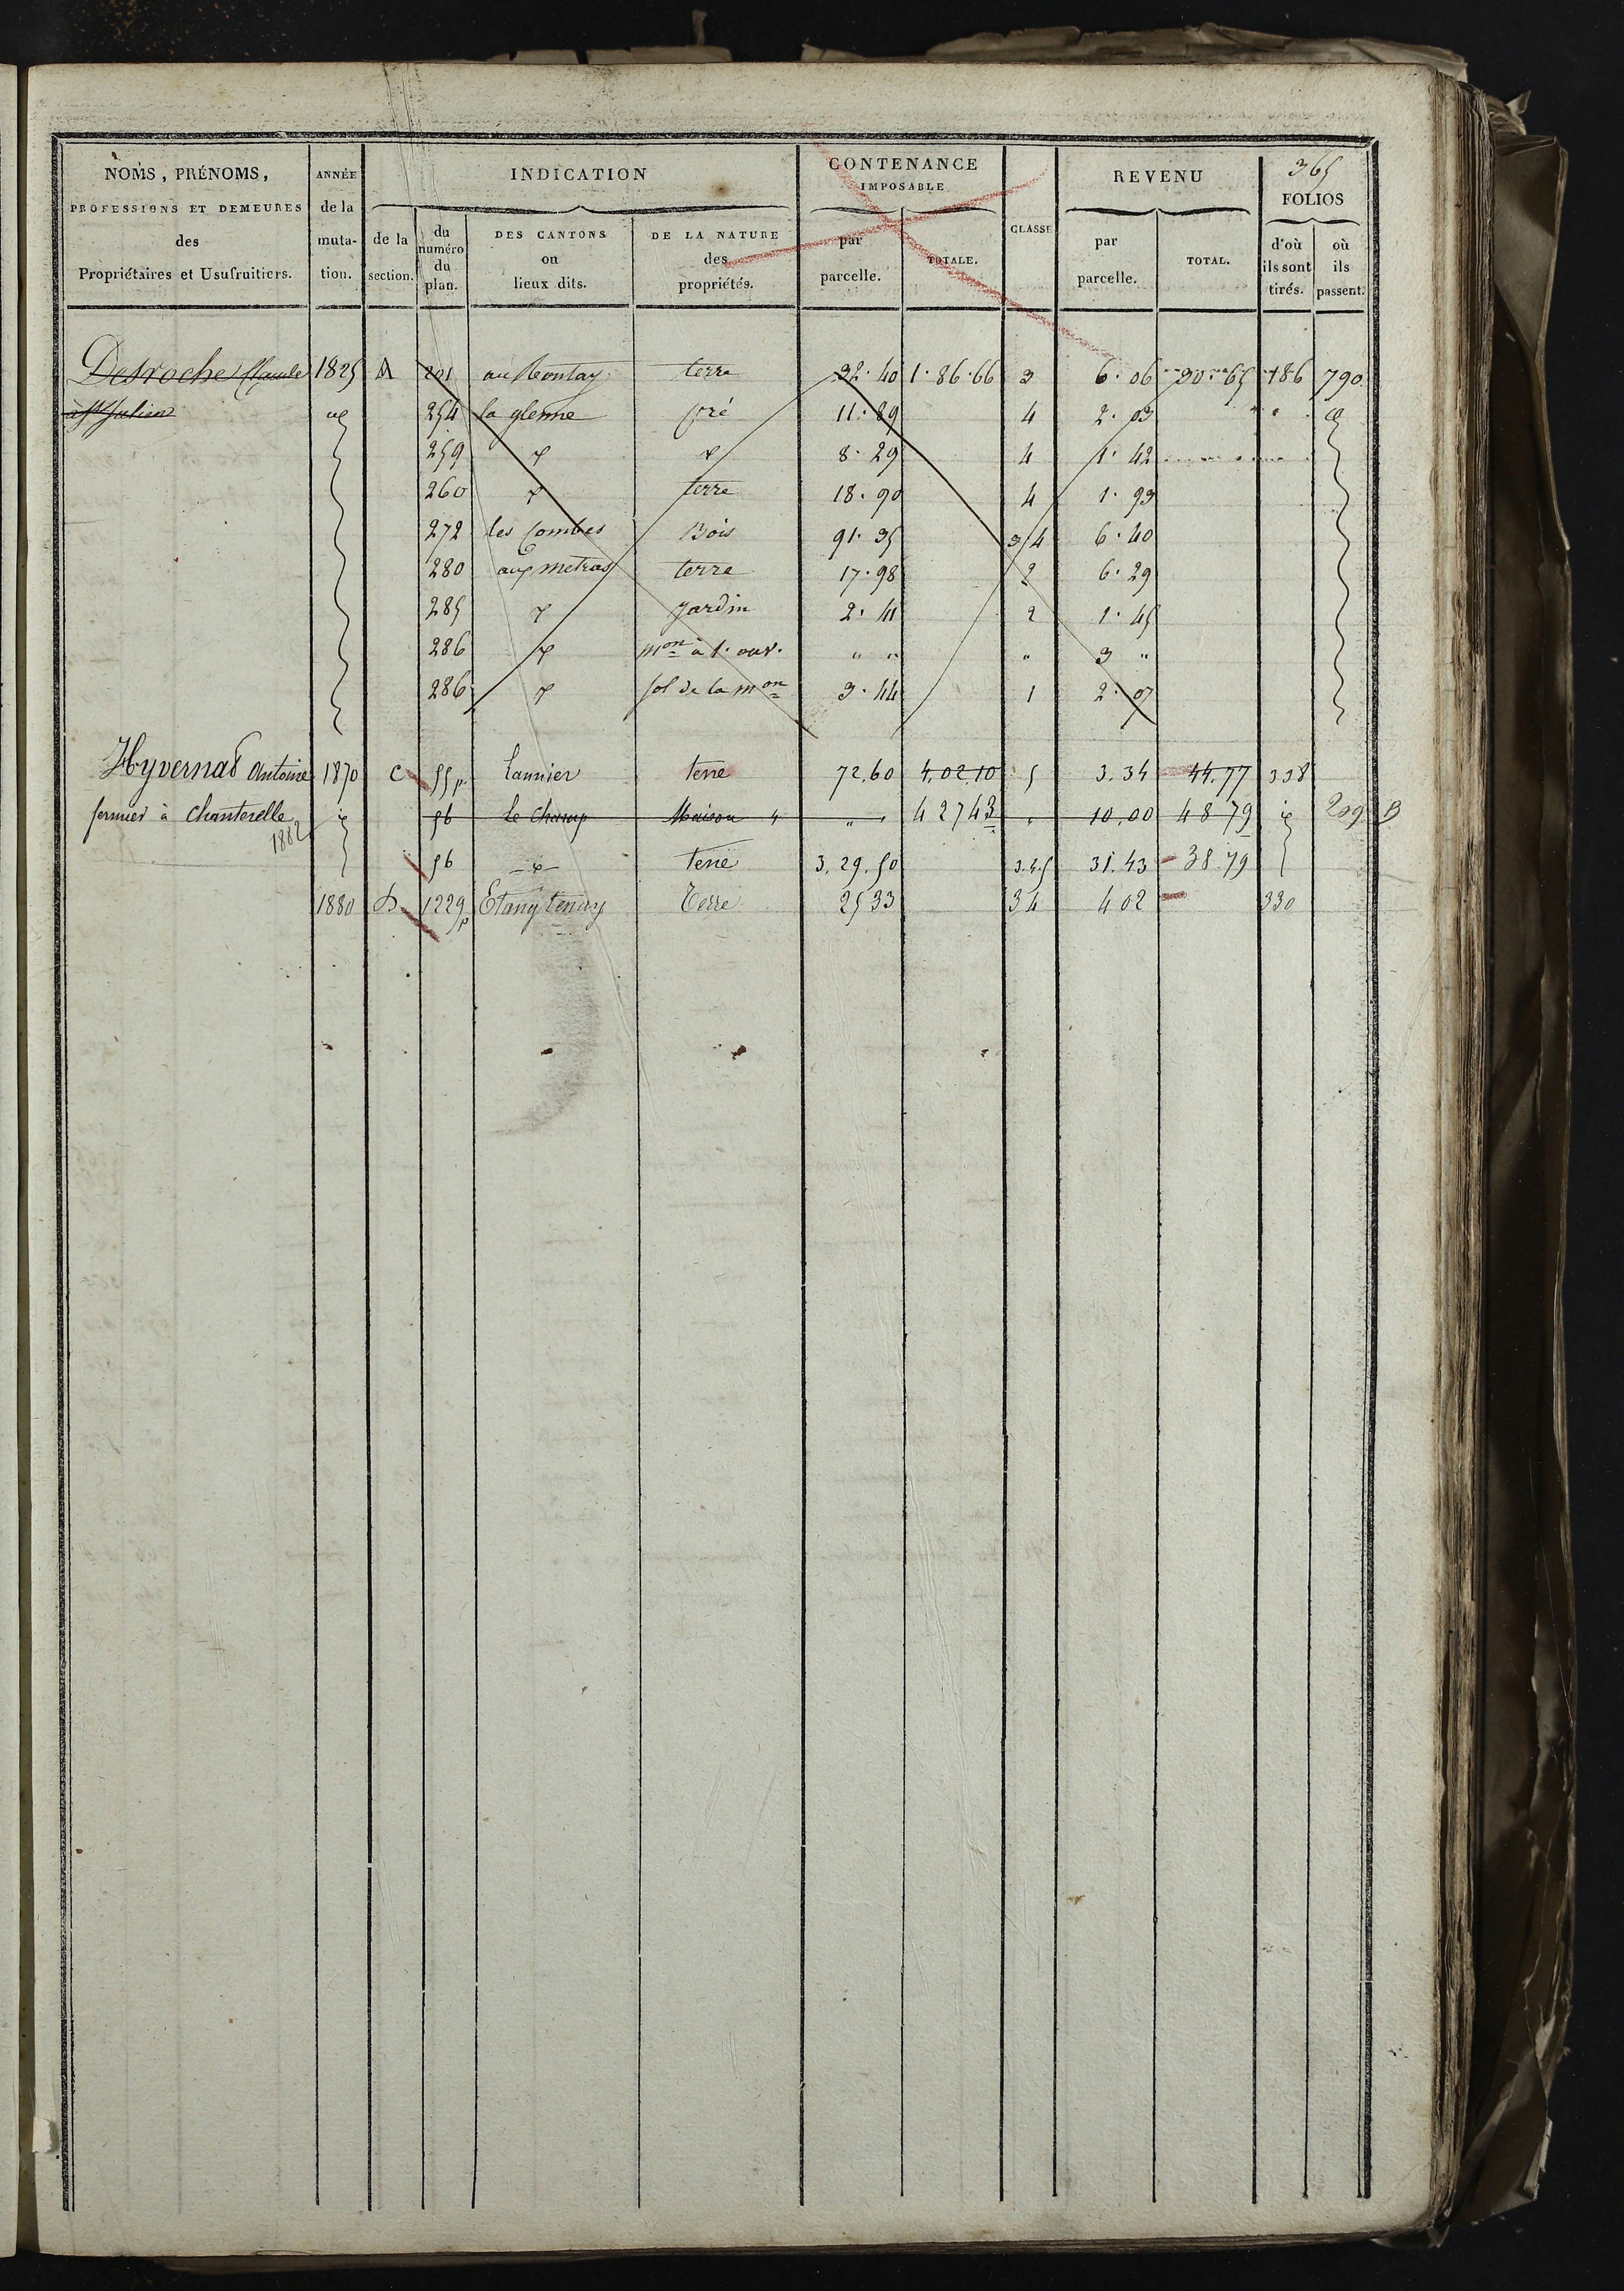 365
NOMS, PRÉNOMS, PROFESSIONS ET DEMEURES des Propriétaires et Usufruitiers.
ANNÉE de la muta- tion.
INDICATION
de la section.
du numéro du plan.
DES CANTONS ou lieux dits.
DE LA NATURE des propriétés.
CONTENANCE IMPOSABLE
par parcelle.
TOTALE.
CLASSE
REVENU
par parcelle.
TOTAL.
FOLIOS
d'où ils sont tirés.
où ils passent.
Desroches Claude 1825 A 201 au terre 32.40 1.86.66 3 6.06 30.65 186 790
à St Julien 254 la glenne pré 11.89 4 2.03
259 8.29 4 1.42
260 terre 18.90 4 1.93
272 les Combes Bois 91.35 3/4 6.40
280 aux metras terre 17.98 2 6.29
285 jardin 2.41 2 1.45
286 mon à 1. ouv. " " " 3 "
286 sol de la mon 3.44 1 2.07
Hyvernas Antoine 1870 C 55 p. Lannier terre 72.60 4.02.10 5 3.34 44.77 338
fermier à Chanterelle 56 le Champ Maison " " 4 27 43 " 10.00 48 79 209 B
1882
56 terre 3.29.50 3.4.5 31.43 38 79
1880 D 1229 p Etang Terre 25 33 3 4 4 02 330